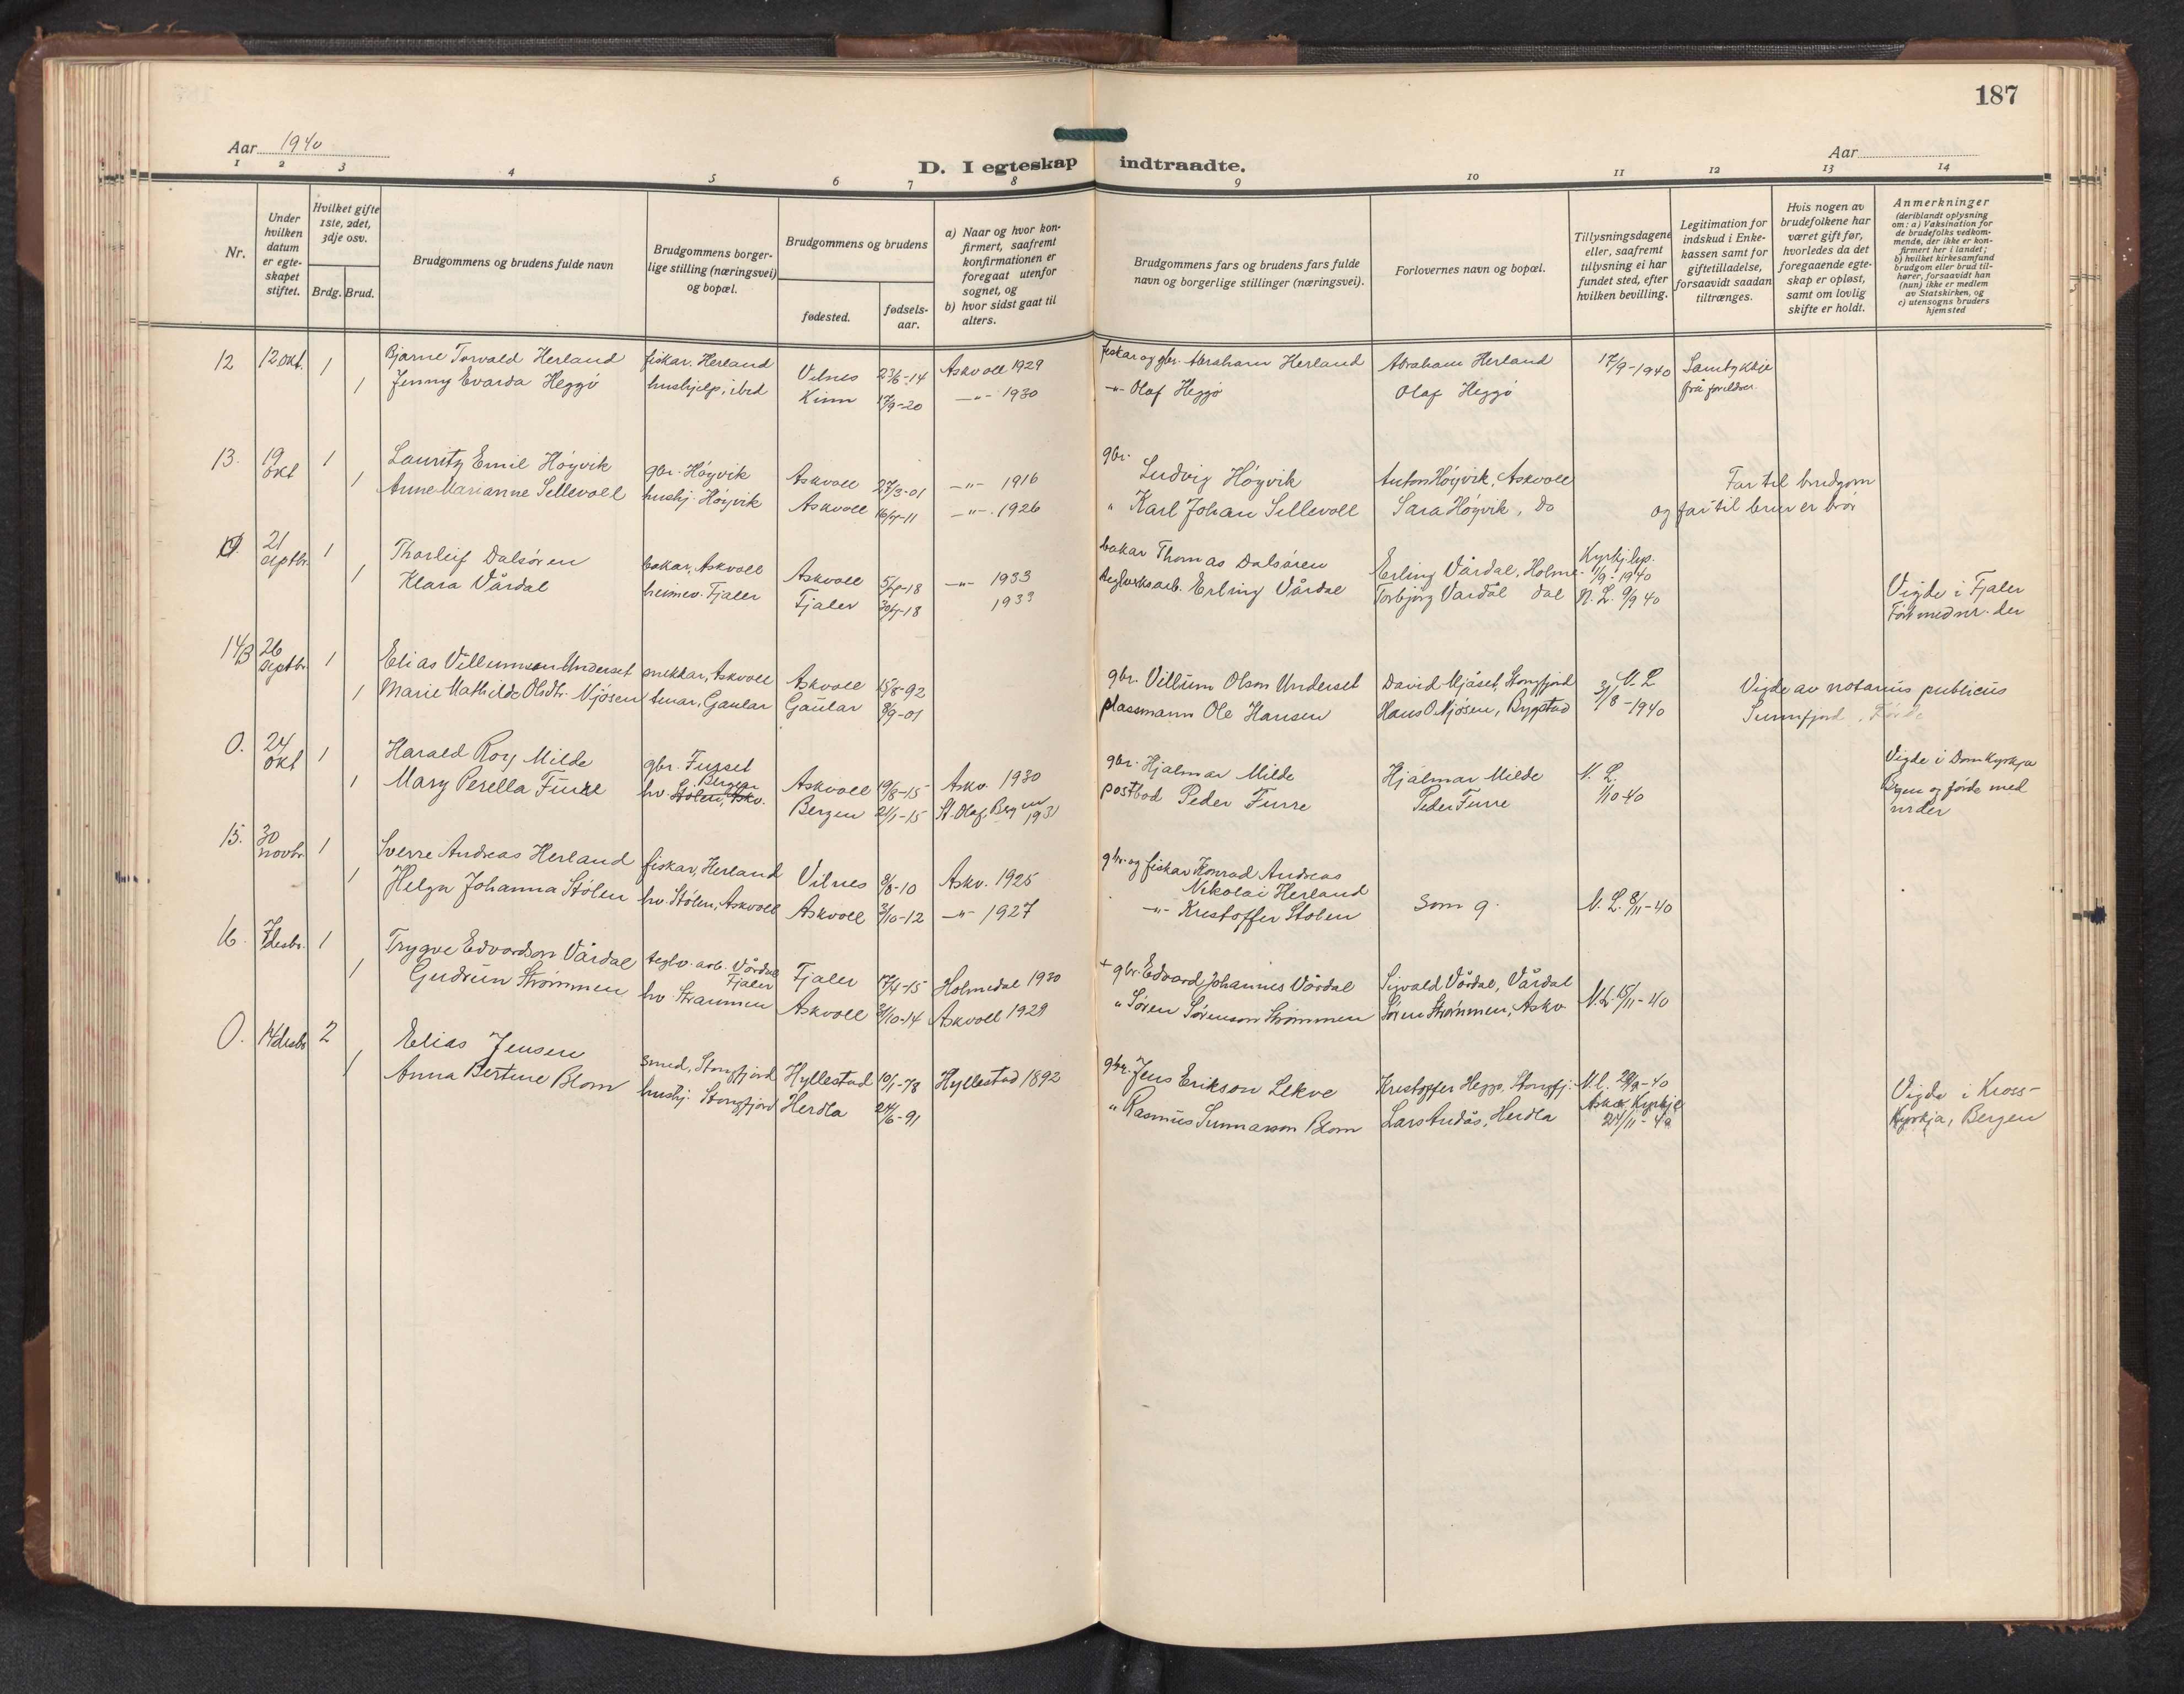 187
Aar 1940
Aar
D. I egteskap indtraadte.
1 2 3 4 5 6 7 8 9 10 11 12 13 14
Nr.
Under hvilken datum er egte-skapet stiftet.
Hvilket gifte 1ste, 2det, 3dje osv.
Brdg. Brud.
Brudgommens og brudens fulde navn
Brudgommens borger-lige stilling (næringsvei) og bopæl.
Brudgommens og brudens
fødested.
fødsels-aar.
a) Naar og hvor kon-firmert, saafremt konfirmationen er foregaat utenfor sognet, og
b) hvor sidst gaat til alters.
Brudgommens fars og brudens fars fulde navn og borgerlige stillinger (næringsvei).
Forlovernes navn og bopæl.
Tillysningsdagene eller, saafremt tillysning ei har fundet sted, efter hvilken bevilling.
Legitimation for indskud i Enke-kassen samt for giftetilladelse, forsaavidt saadan tiltrænges.
Hvis nogen av brudefolkene har været gift før, hvorledes da det foregaaende egte-skap er opløst, samt om lovlig skifte er holdt.
Anmerkninger
(deriblandt oplysning om: a) Vaksination for de brudefolks vedkom-mende, der ikke er kon-firmert her i landet;
b) hvilket kirkesamfund brudgom eller brud til-hører, forsaavidt han (hun) ikke er medlem av Statskirken, og
c) utensogns bruders hjemsted
12 12 okt. 1 Bjarne Torvald Herland fiskar. Herland Vilnes 23/6-14 Askvoll 1929 fiskar og gbr. Abraham Herland Abraham Herland 17/9-1940 Samtykkje
1 Jenny Evarda Heggø hushjelp, ibid Kinn 17/9-20 -"- 1930 -"- Olaf Heggø Olaf Heggø frå foreldre
13. 19 okt 1 Lauritz Emil Høyvik gbr. Høyvik Askvoll 27/3-01 -"- 1916 gbr. Ludvig Høyvik Anton Høyvik, Askvoll Far til brudgom
1 Anne Marianne Sellevoll hushj. Høyvik Askvoll 16/4-11 -"- 1926 " Karl Johan Sellevoll Sara Høyvik, Do og far til brur er brør
0. 21 septbr. 1 Thorleif Dalsøren bakar, Askvoll Askvoll 5/4-18 -"- 1933 bakar Thomas Dalsøren Erling Vårdal, Holme- Kyrkj. lys. 1/9-1940
1 Klara Vårdal heimev. Fjaler Fjaler 30/4-18 1933 teglverksarb. Erling Vårdal Torbjørg Vårdal dal N. L. 9/9 40 Vigde i Fjaler
Ført med nr. der
14/B 26 septbr. 1 Elias Villumsen Underset snekkar, Askvoll Askvoll 15/8-92 gbr. Villum Olson Underset David Mjåset, Stongfjord N. L. Vigde av notarius publicus
1 Marie Mathilde Olsdtr. Mjøsen tenar, Gaular Gaular 8/9-01 plassmann Ole Hansen Hans O. Mjøsen, Bygstad 31/8-1940 Sunnfjord, Førde
0. 24 okt 1 Harald Roy Milde gbr. Furset Askvoll 19/8-15 Askv. 1930 gbr. Hjalmar Milde Hjalmar Milde N. L. Vigde i Domkyrkja
1 Mary Perella Furre hv. Stølen, Askv. Bergen Bergen 21/1-15 St. Olaf, Bergen 1931 postbod Peder Furre Peder Furre 1/10-40 Bgen og førde med
nr der
15. 30 novbr. 1 Sverre Andreas Herland fiskar, Herland Vilnes 8/8-10 Askv. 1925 gbr. og fiskar Konrad Andreas
Nikolai Herland
1 Helga Johanna Stølen hv. Stølen, Askvoll Askvoll 3/10-12 -"- 1927 -"- Kristoffer Stølen Som 9. N. L. 8/11-40
16. 7 desbr. 1 Trygve Edvardson Vårdal teglv. arb. Vårdal Fjaler Fjaler 17/4-15 Holmedal 1930 + gbr. Edvard Johannes Vårdal Sigvald Vårdal, Vårdal
1 Gudrun Strømmen hv. Straumen Askvoll 31/10-14 Askvoll 1929 " Søren Sørenson Strømmen Søren Strømmen, Askv. N.L. 15/11-40
0. 14 desbr 2 Elias Jensen smed, Stongfjord Hyllestad 10/1-78 Hyllestad 1892 gbr. Jens Erikson Lekve Kristoffer Hegg. Stongfj. N.l. 29/9-40 Vigde i Kross-
1 Anna Bertine Blom hushj. Stongfjord Herdla 24/6-91 " Rasmus Sunnarson Blom Lars Andås, Herdla Askv. Kyrkje 24/11-40 Kyrkja, Bergen